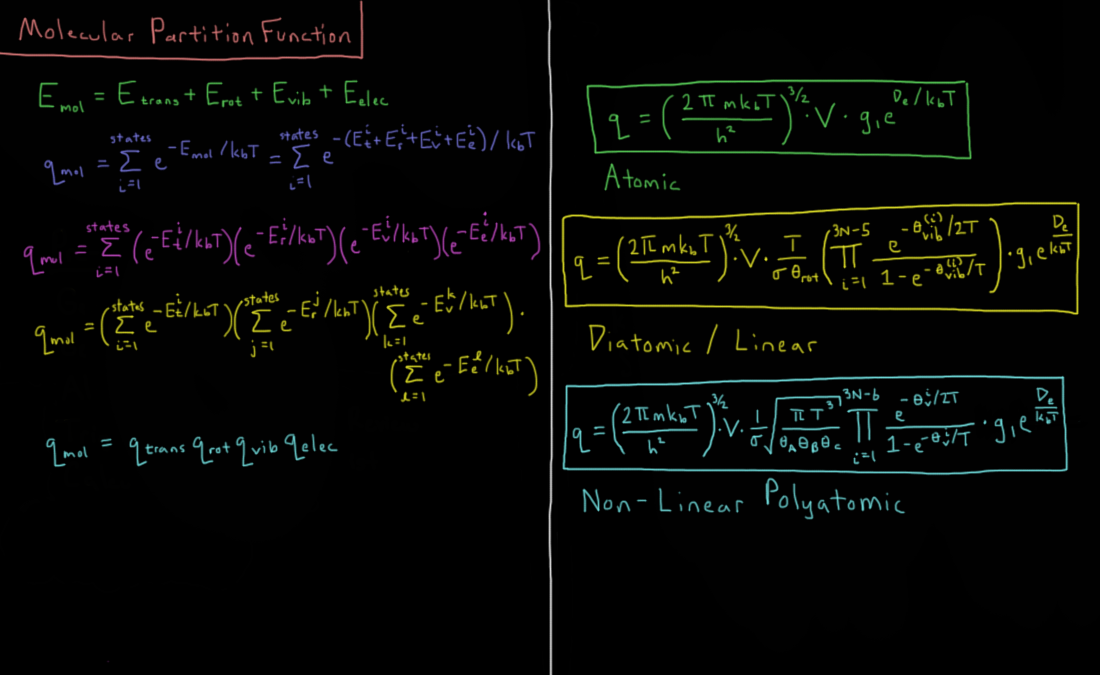 Molecular Partition Function
E_mol = E_trans + E_rot + E_vib + E_elec
q_mol = Σ_{i=1}^{states} e^{-E_mol/k_bT} = Σ_{i=1}^{states} e^{-(E_t^i+E_r^i+E_v^i+E_e^i)/k_bT}
q_mol = Σ_{i=1}^{states} (e^{-E_t^i/k_bT})(e^{-E_r^i/k_bT})(e^{-E_v^i/k_bT})(e^{-E_e^i/k_bT})
q_mol = (Σ_{i=1}^{states} e^{-E_t^i/k_bT})(Σ_{j=1}^{states} e^{-E_r^j/k_bT})(Σ_{k=1}^{states} e^{-E_v^k/k_bT}) ·
(Σ_{l=1}^{states} e^{-E_e^l/k_bT})
q_mol = q_trans q_rot q_vib q_elec
q = (2πmk_bT/h²)^{3/2} · V · g_1 e^{D_e/k_bT}
Atomic
q = (2πmk_bT/h²)^{3/2} · V · T/(σθ_rot) (∏_{i=1}^{3N-5} e^{-θ_vib^{(i)}/2T}/(1-e^{-θ_vib^{(i)}/T})) · g_1 e^{D_e/k_bT}
Diatomic / Linear
q = (2πmk_bT/h²)^{3/2} · V · 1/σ √(πT³/(θ_Aθ_Bθ_C)) ∏_{i=1}^{3N-6} e^{-θ_v^i/2T}/(1-e^{-θ_v^i/T}) · g_1 e^{D_e/k_bT}
Non-Linear Polyatomic